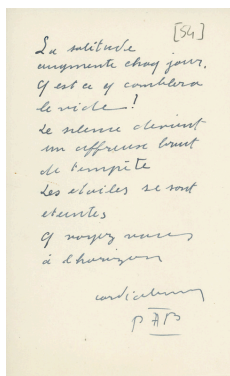 [54]
La solitude
augmente chaq jour.
Q est ce q comblera
le vide !
Le silence devient
un affreuse bruit
de tempête
Les etoiles se sont
eteintes
Q voyez vous
à l'horizon
cordialement
PAB